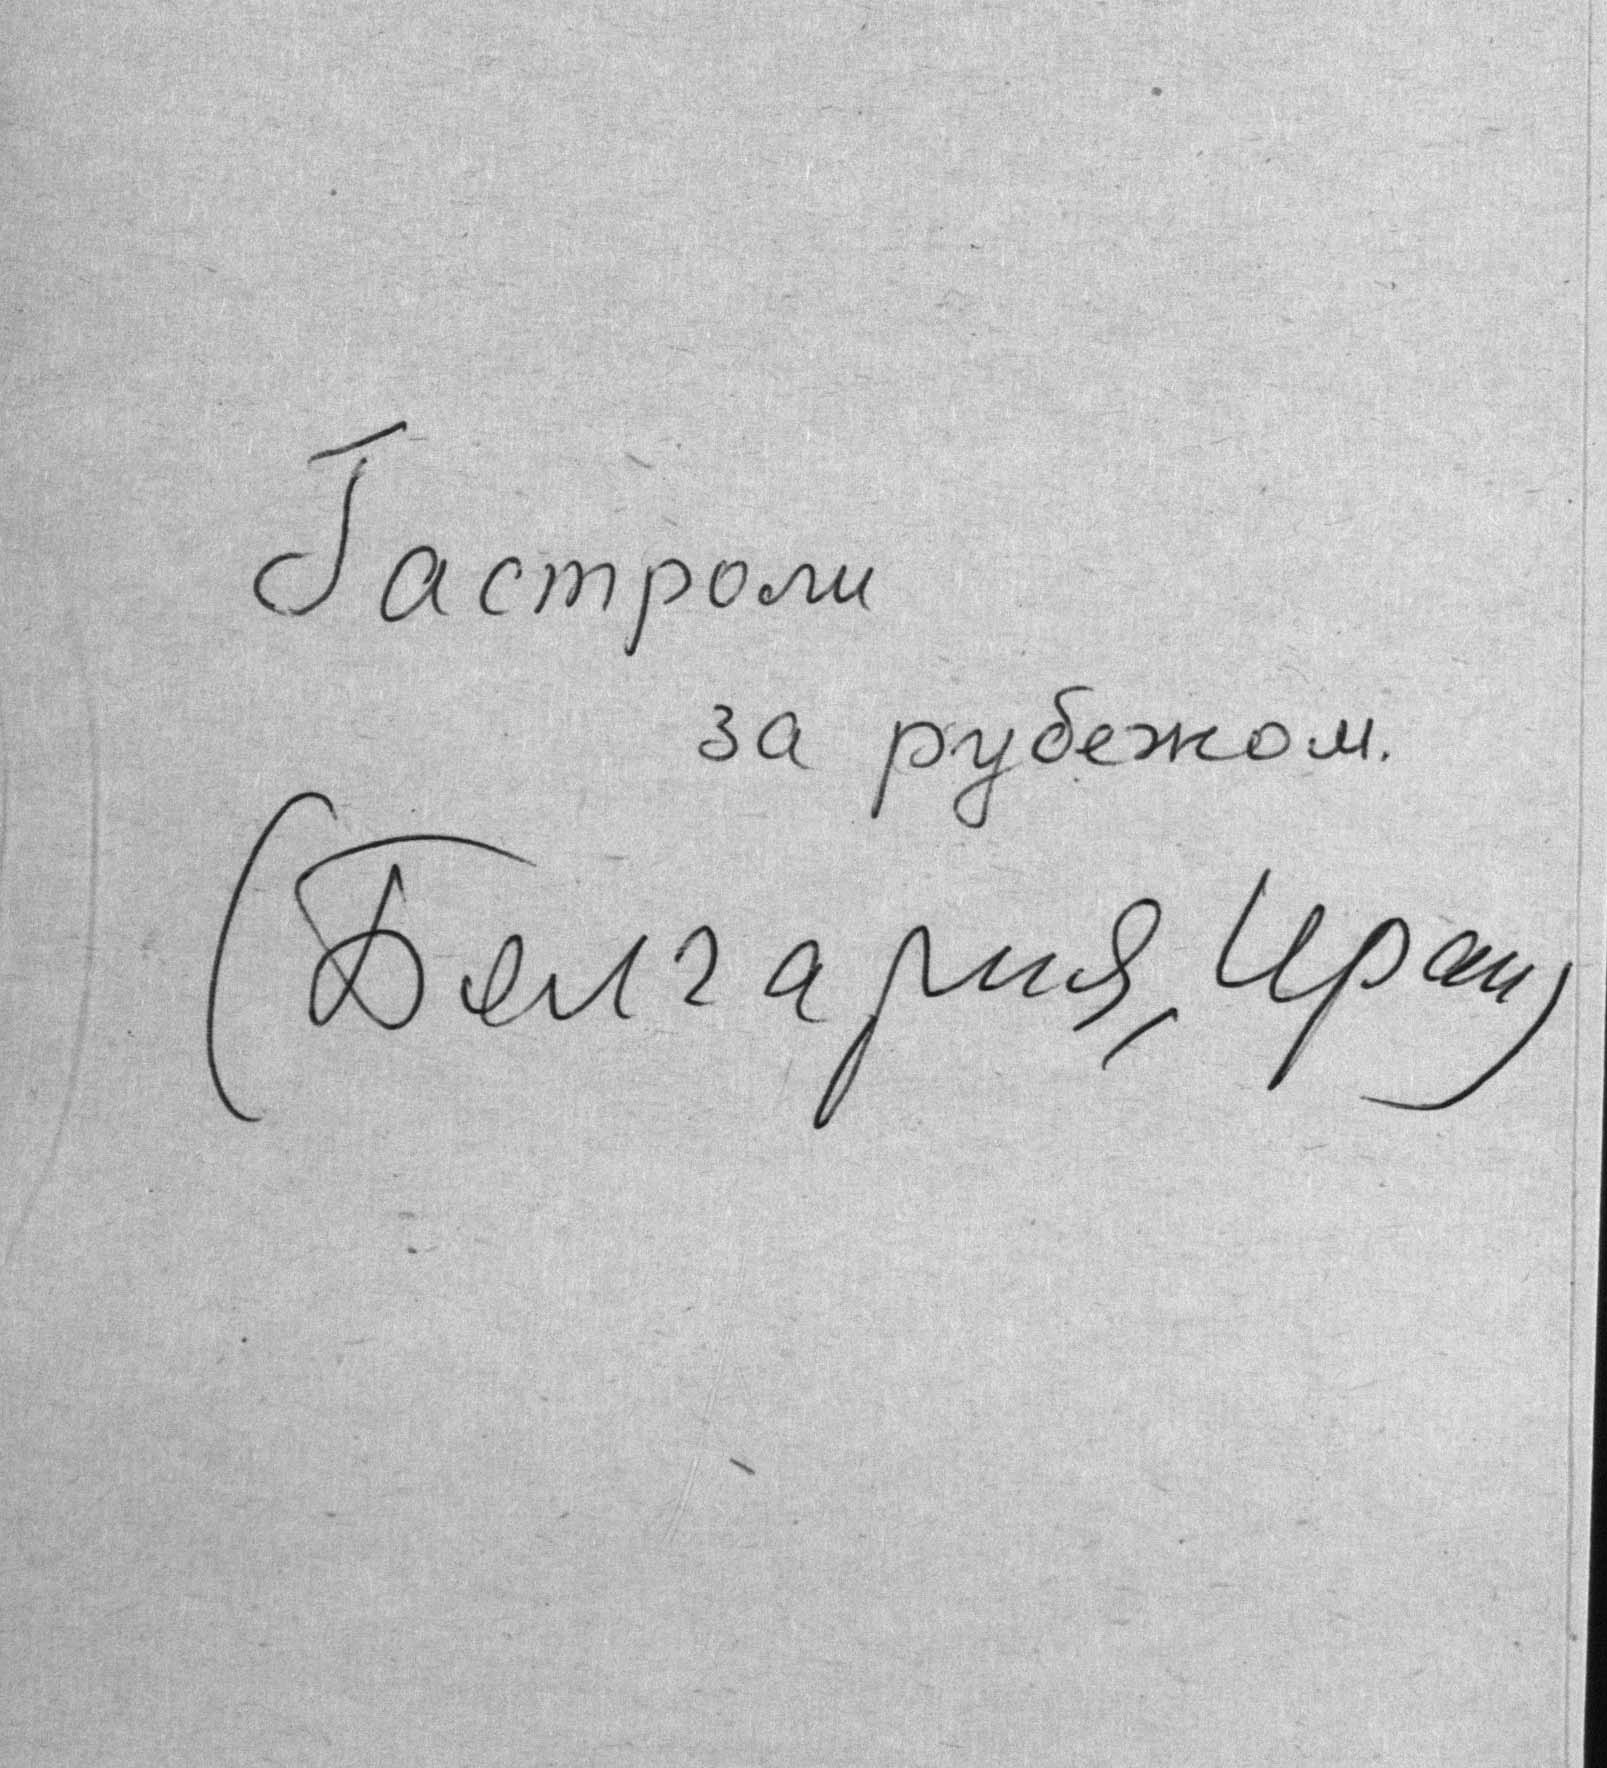 Гастроли
за рубежом.
(Болгария, Иран)